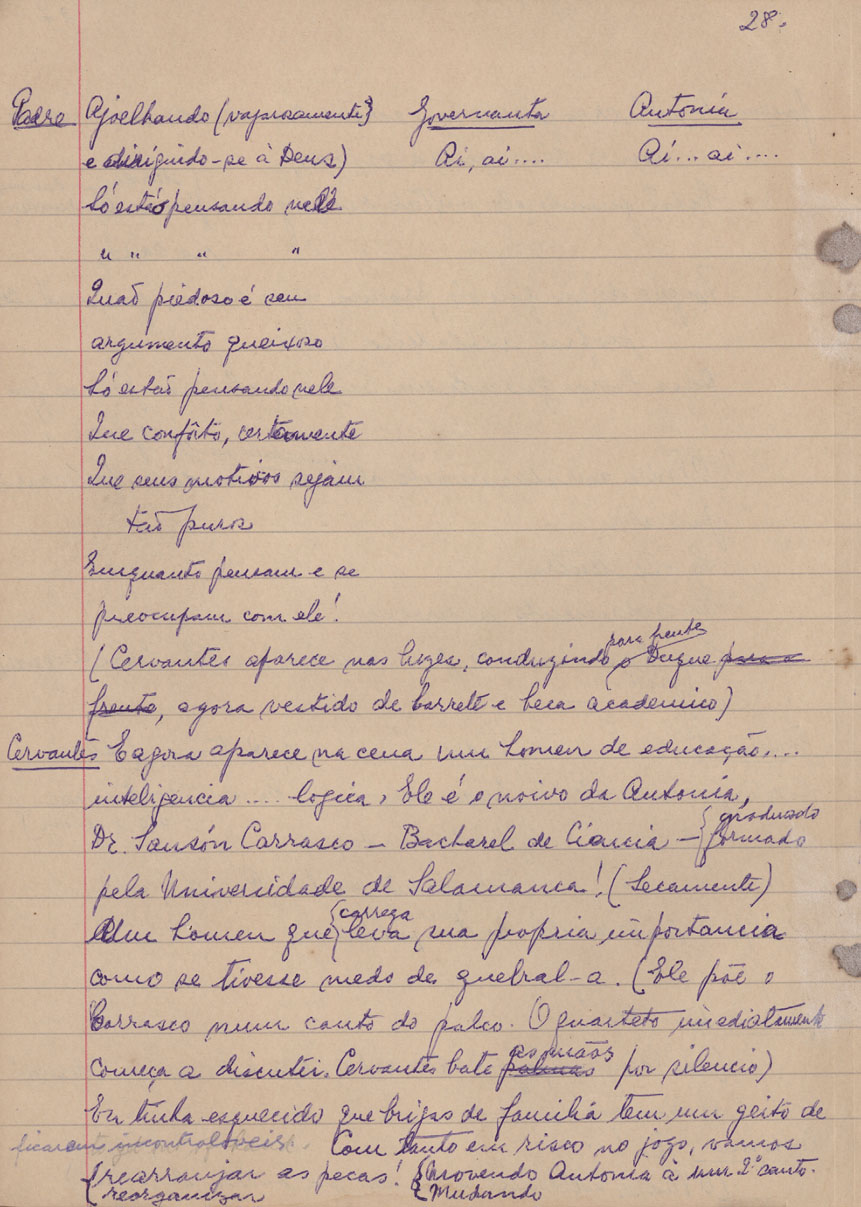 28.
Padre Ajoelhando (vaporosamente} Governanta Antonia
e dirigindo-se à Deus) Ai, ai.... Ai... ai....
Só estão pensando nele
" " " "
Quaō piedoso é seu
argumento queixoso
Só estaō pensando nele
Que confôrto, certamente
Que seus motivos sejam
taō puros
Enquanto pensam e se
preocupam com ele!
para frente
(Cervantes aparece nas luzes, conduzindo o Duque para a
frente, agora vestido de barrete e beca academico)
Cervantes E agora aparece na cena um homen de educação....
inteligencia .... logica, Ele é o noivo da Antonia,
{graduado
Dr. Sansón Carrasco – Bacharel de Ciencia – formado
pela Universidade de Salamanca! (Secamente)
{carrega
Um homen que leva sua propria importancia
como se tivesse medo de quebral-a. (Ele põe o
Carrasco num canto do palco. O quarteto imediatamente
as mãos
começa a discutir. Cervantes bate palmas por silencio)
Eu tinha esquecido que brigas de familia tem um geito de
ficarem incontroloveis. Com tanto em risco no jogo, vamos
{rearranjar as peças! {Movendo Antonia à um 2º canto.
{reorganizar {Mudando